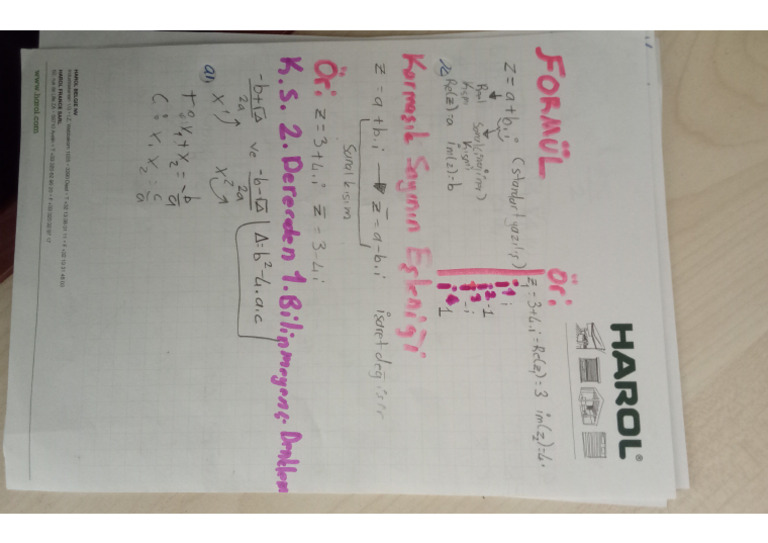 HAROL®
FORMÜL
Ör:
z = a + b.i (standart yazılış)
Reel Kısmı Sanal (imajiner) Kısmı
Re(z)=a im(z)=b
z₁=3+4.i = Re(z₁)=3 im(z₂)=4.
i1 i
i2 -1
i3 -i
i4 1
Karmaşık Sayının Eşleniği
z = a+b.i → z̄ = a-b.i işaret değişir
sanal kısım
Ör: z = 3+4.i z̄ = 3-4i
K.S. 2. Dereceden 1. Bilinmeyenş. Denklem
-b+√Δ/2a ve -b-√Δ/2a Δ=b²-4.a.c
x1 x2
a)
t: x₁+x₂ = -b/a
Ç: x₁ x₂ = c/a
HAROL BELGE NV
HAROL FRANCE SARL
www.harol.com